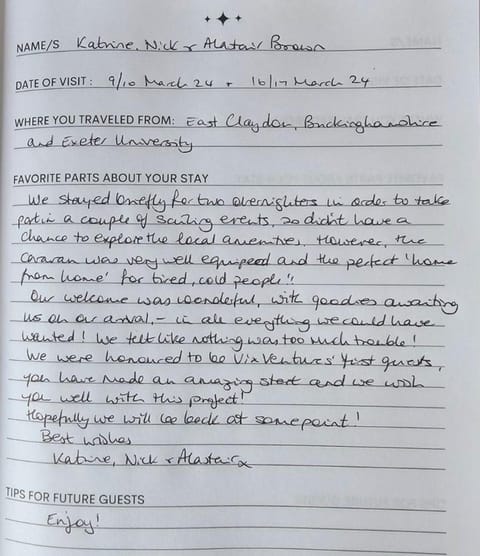 NAME/S Katrine, Nick + Alatair Brown
DATE OF VISIT: 9/10 March 24 + 16/17 March 24
WHERE YOU TRAVELED FROM: East Claydon, Buckinghamshire
and Exeter University
FAVORITE PARTS ABOUT YOUR STAY
We stayed briefly for two overnighters in order to take
part in a couple of sailing events, so didn't have a
chance to explore the local amenities. However, the
caravan was very well equipped and the perfect 'home
from home' for tired, cold people!!
Our welcome was wonderful, with goodies awaiting
us on our arrival, - in all everything we could have
wanted! We felt like nothing was too much trouble!
We were honoured to be Vix Ventures' first guests,
you have made an amazing start and we wish
you well with this project!
Hopefully we will be back at some point!
Best wishes
Katrine, Nick + Alastair x
TIPS FOR FUTURE GUESTS
Enjoy!